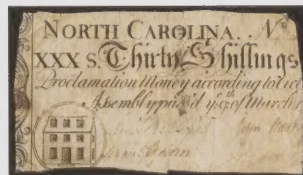 NORTH CAROLINA. . No
XXX S. Thirty Shillings
Proclamation Money according to Act
Assembly pass'd ye 9th of March